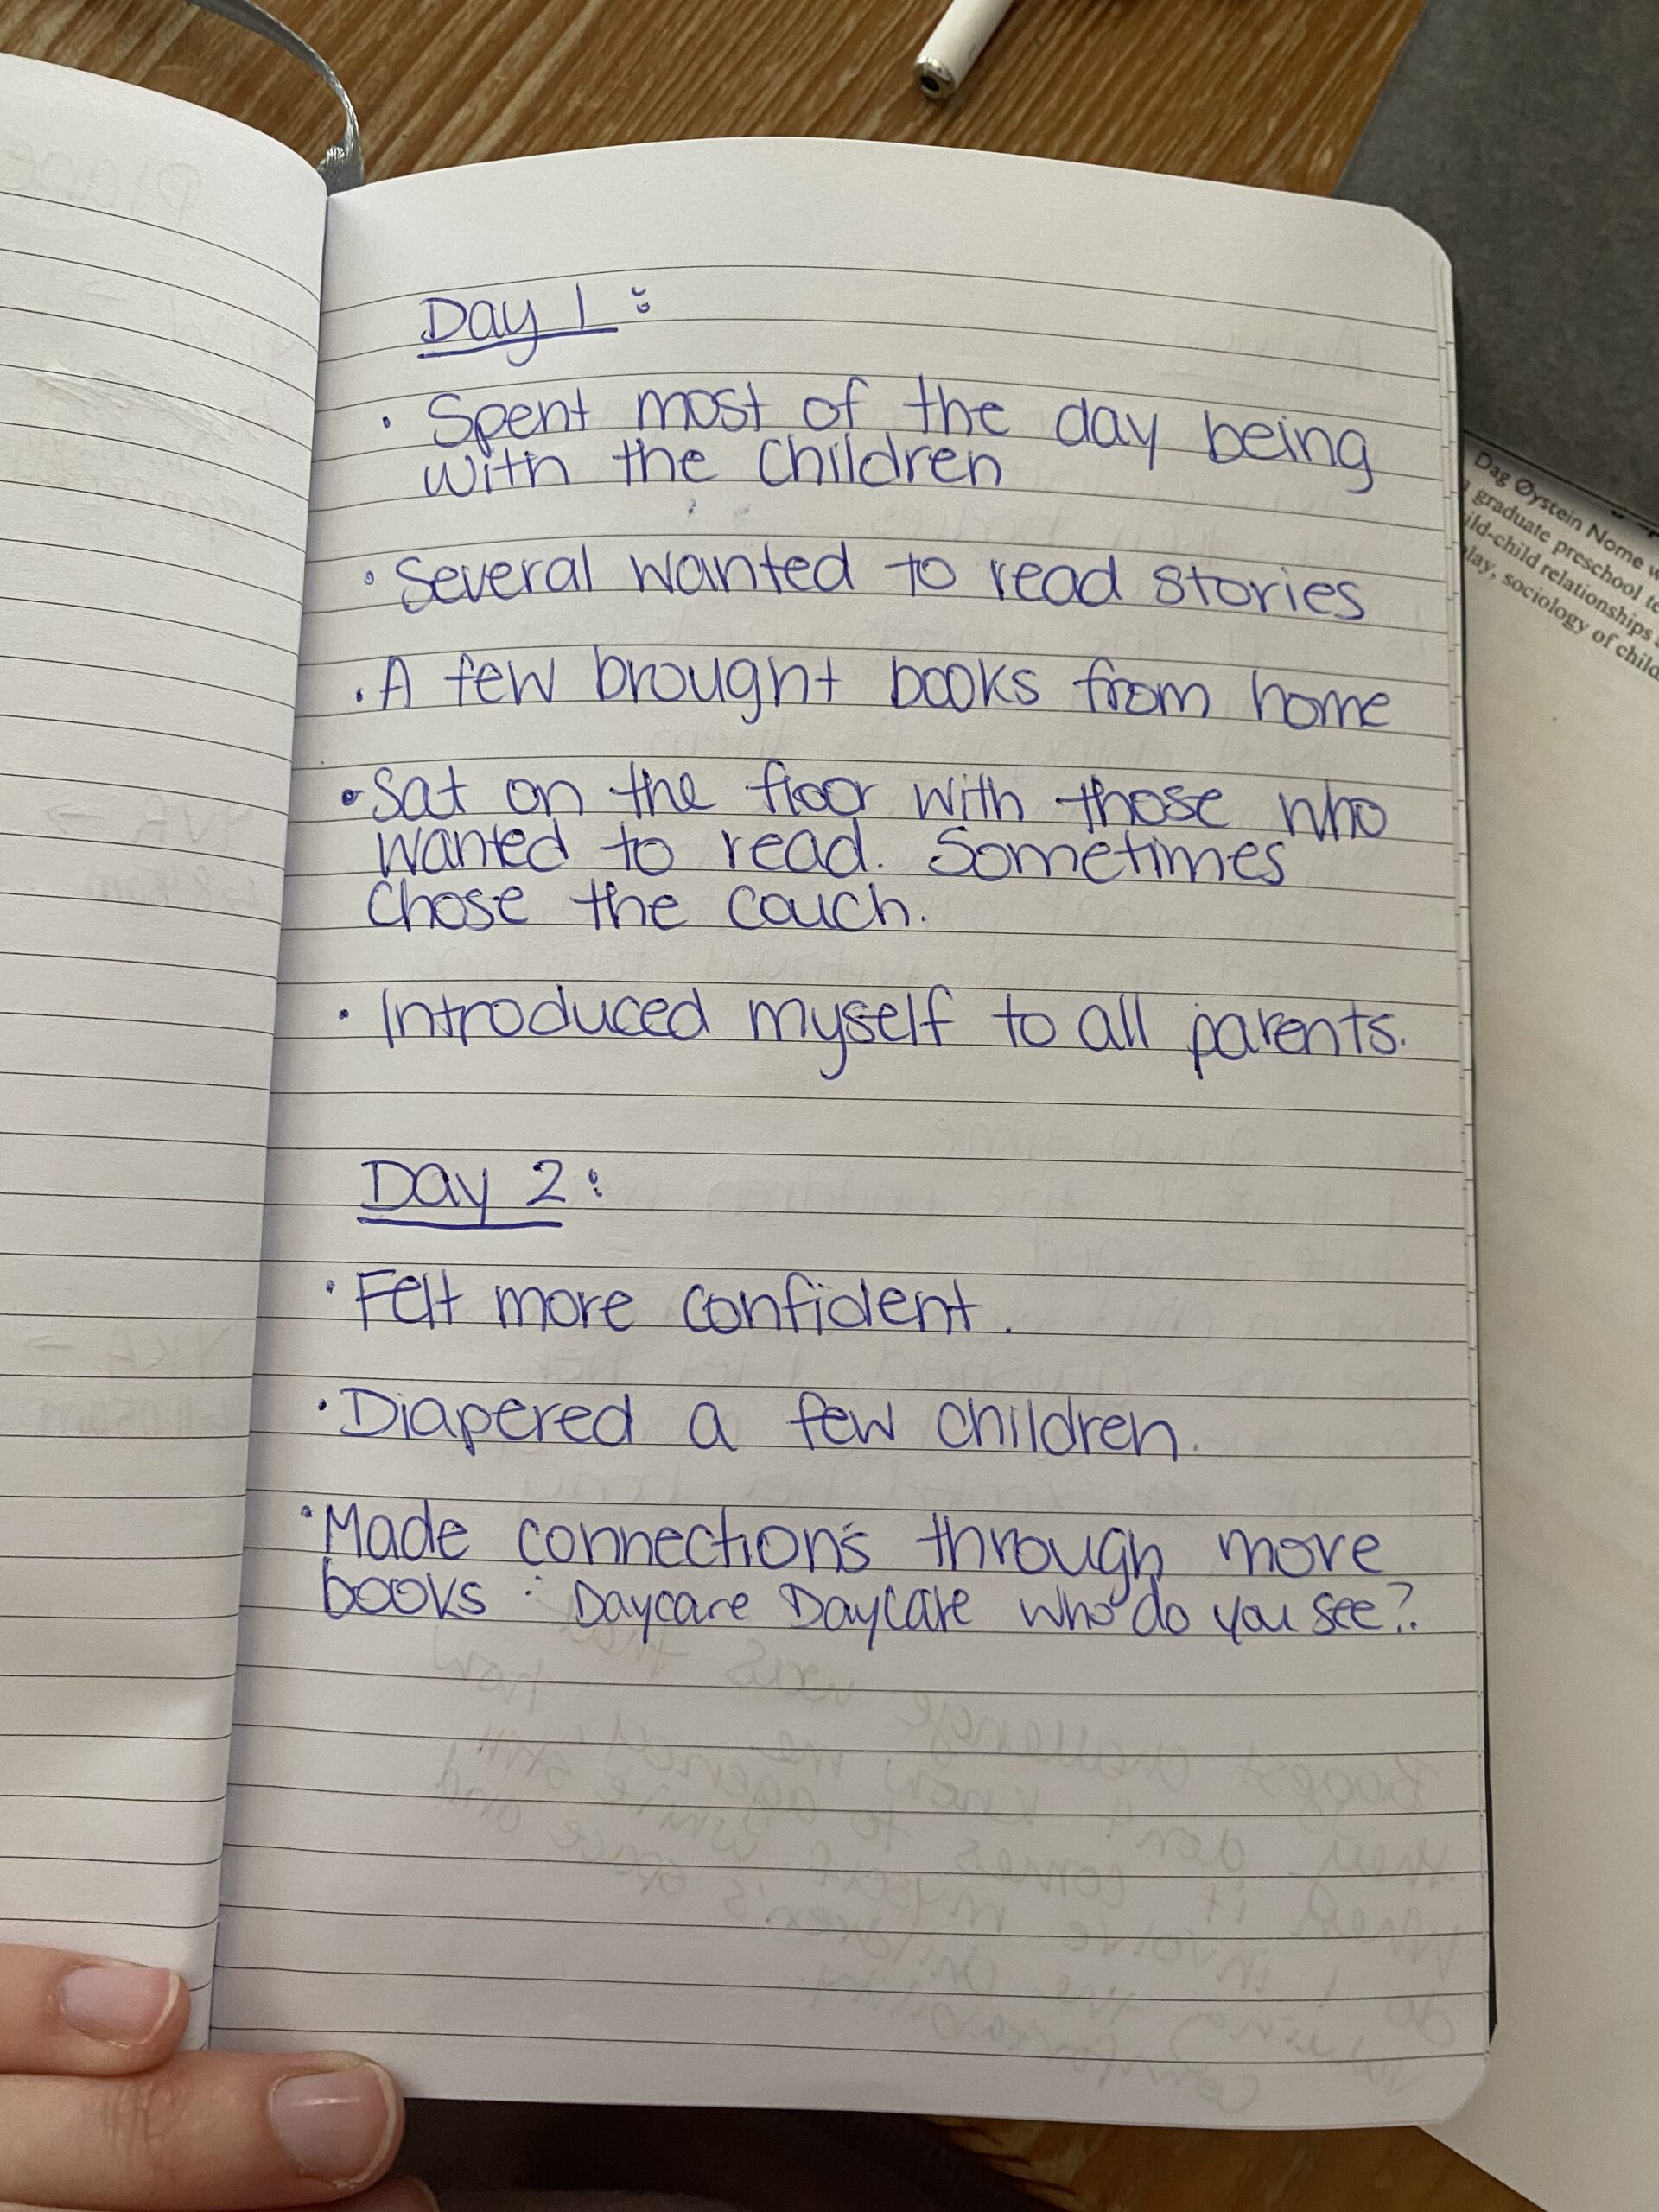 Day 1:
• Spent most of the day being
with the children
• Several wanted to read stories
• A few brought books from home
• Sat on the floor with those who
wanted to read. Sometimes
chose the couch.
• Introduced myself to all parents.
Day 2:
• Felt more confident.
• Diapered a few children.
• Made connections through more
books : Daycare Daycare who do you see?
Dag Øystein Nome
graduate preschool
child relationships
sociology of